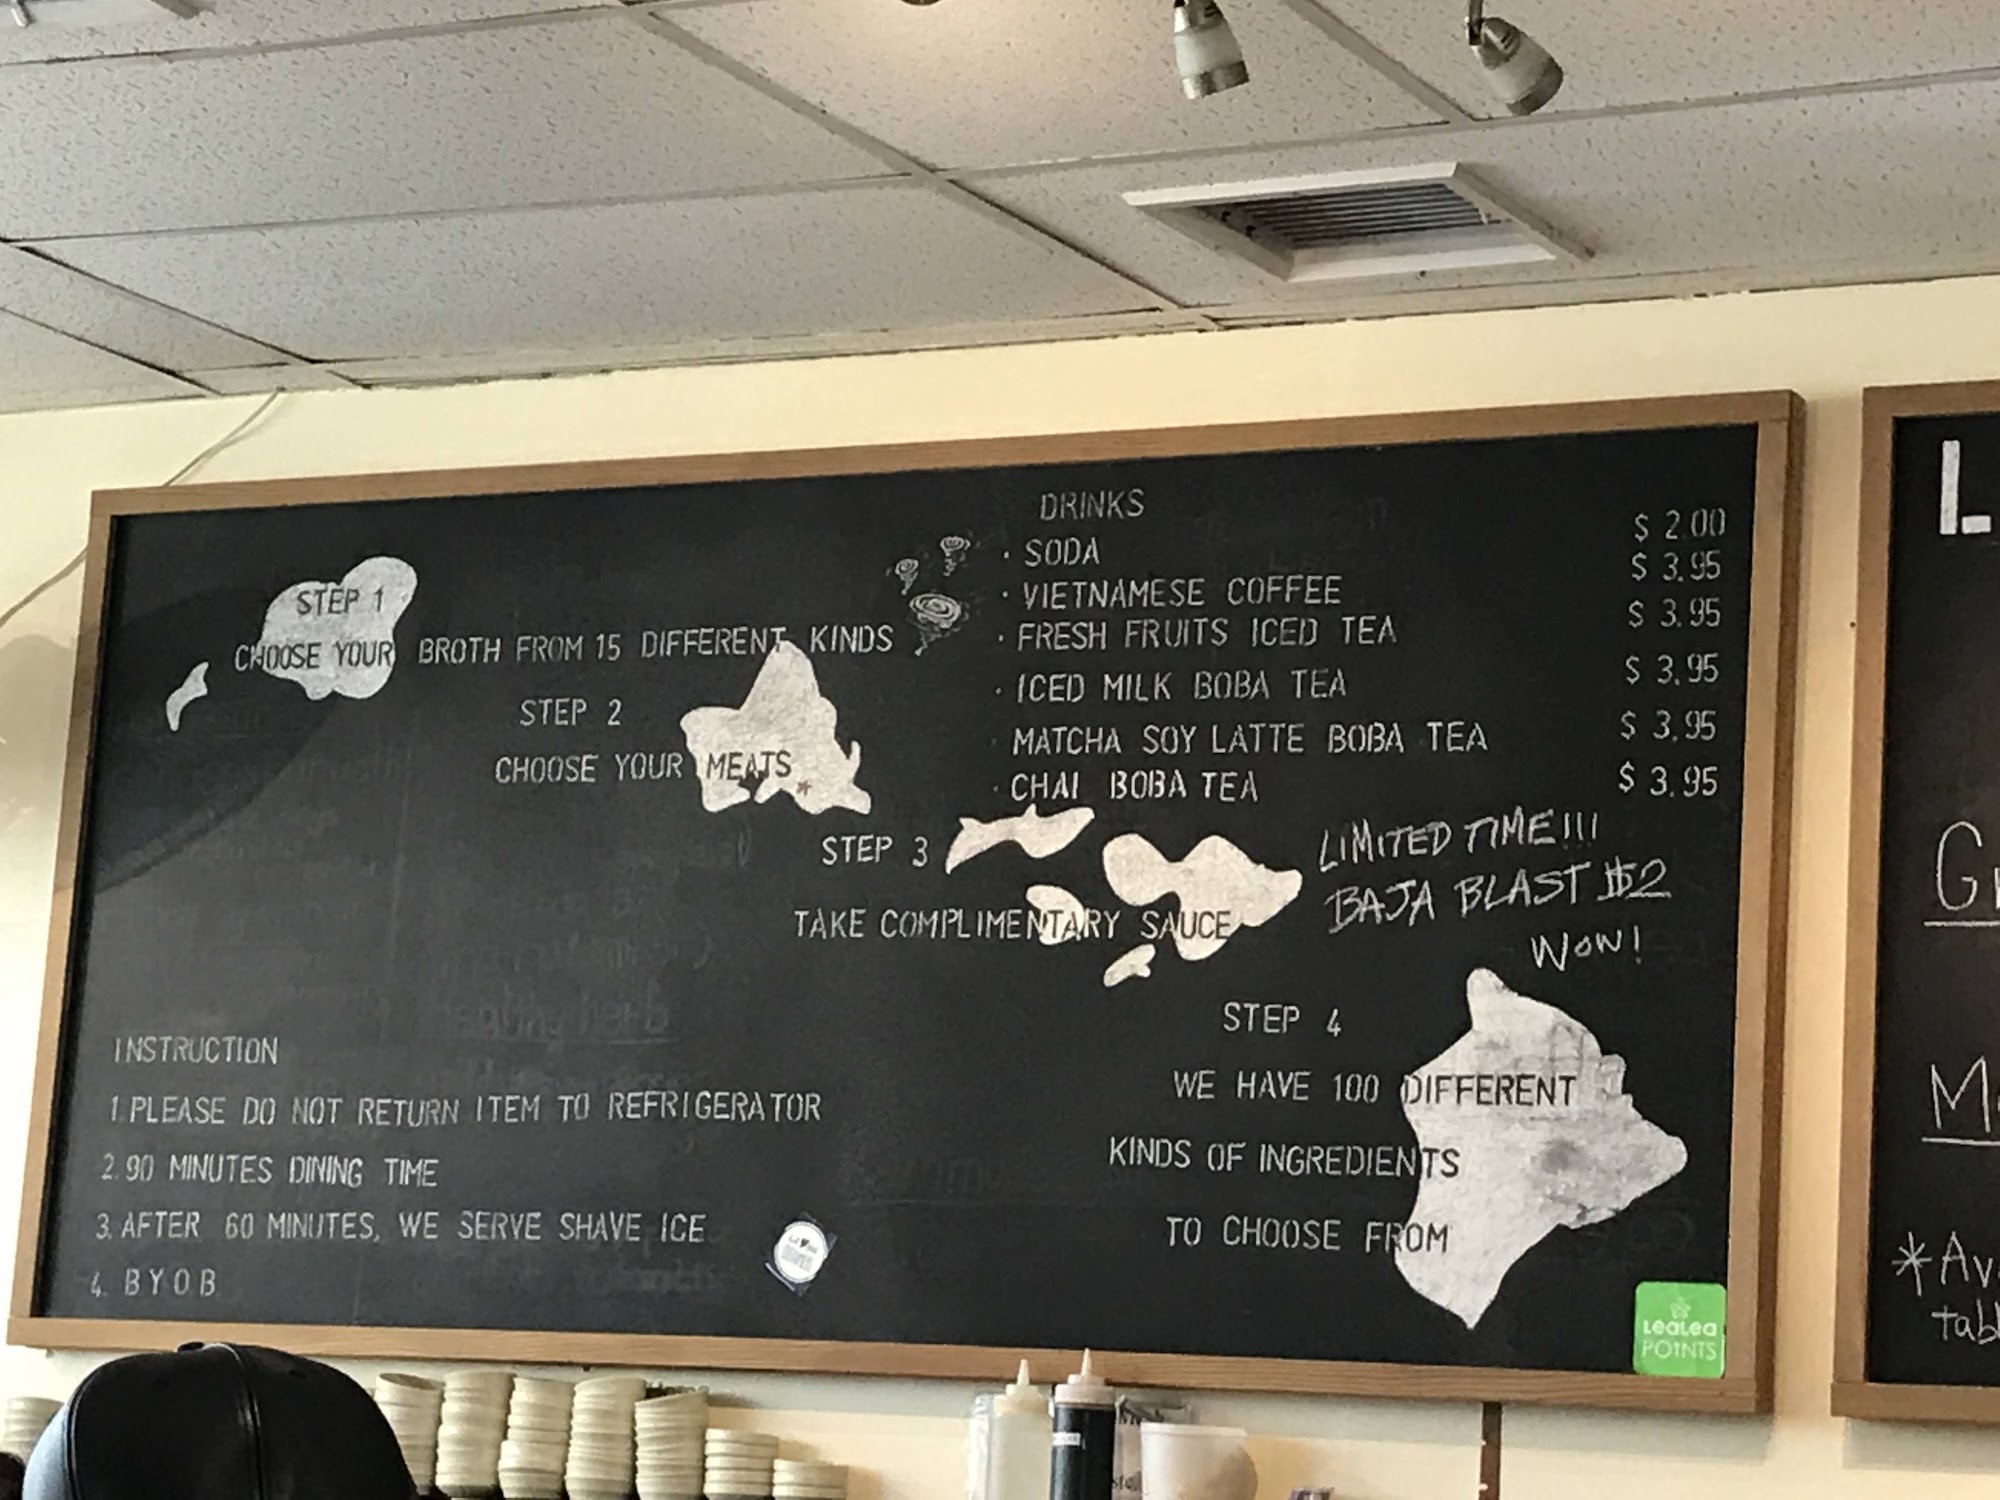 STEP 1
CHOOSE YOUR BROTH FROM 15 DIFFERENT KINDS
STEP 2
CHOOSE YOUR MEATS
STEP 3
TAKE COMPLIMENTARY SAUCE
STEP 4
WE HAVE 100 DIFFERENT
KINDS OF INGREDIENTS
TO CHOOSE FROM
DRINKS
· SODA $ 2.00
· VIETNAMESE COFFEE $ 3.95
· FRESH FRUITS ICED TEA $ 3.95
· ICED MILK BOBA TEA $ 3.95
· MATCHA SOY LATTE BOBA TEA $ 3.95
· CHAI BOBA TEA $ 3.95
LIMITED TIME!!!
BAJA BLAST $2
WOW!
INSTRUCTION
1. PLEASE DO NOT RETURN ITEM TO REFRIGERATOR
2. 90 MINUTES DINING TIME
3. AFTER 60 MINUTES, WE SERVE SHAVE ICE
4. BYOB
LeaLea
POINTS
L
*